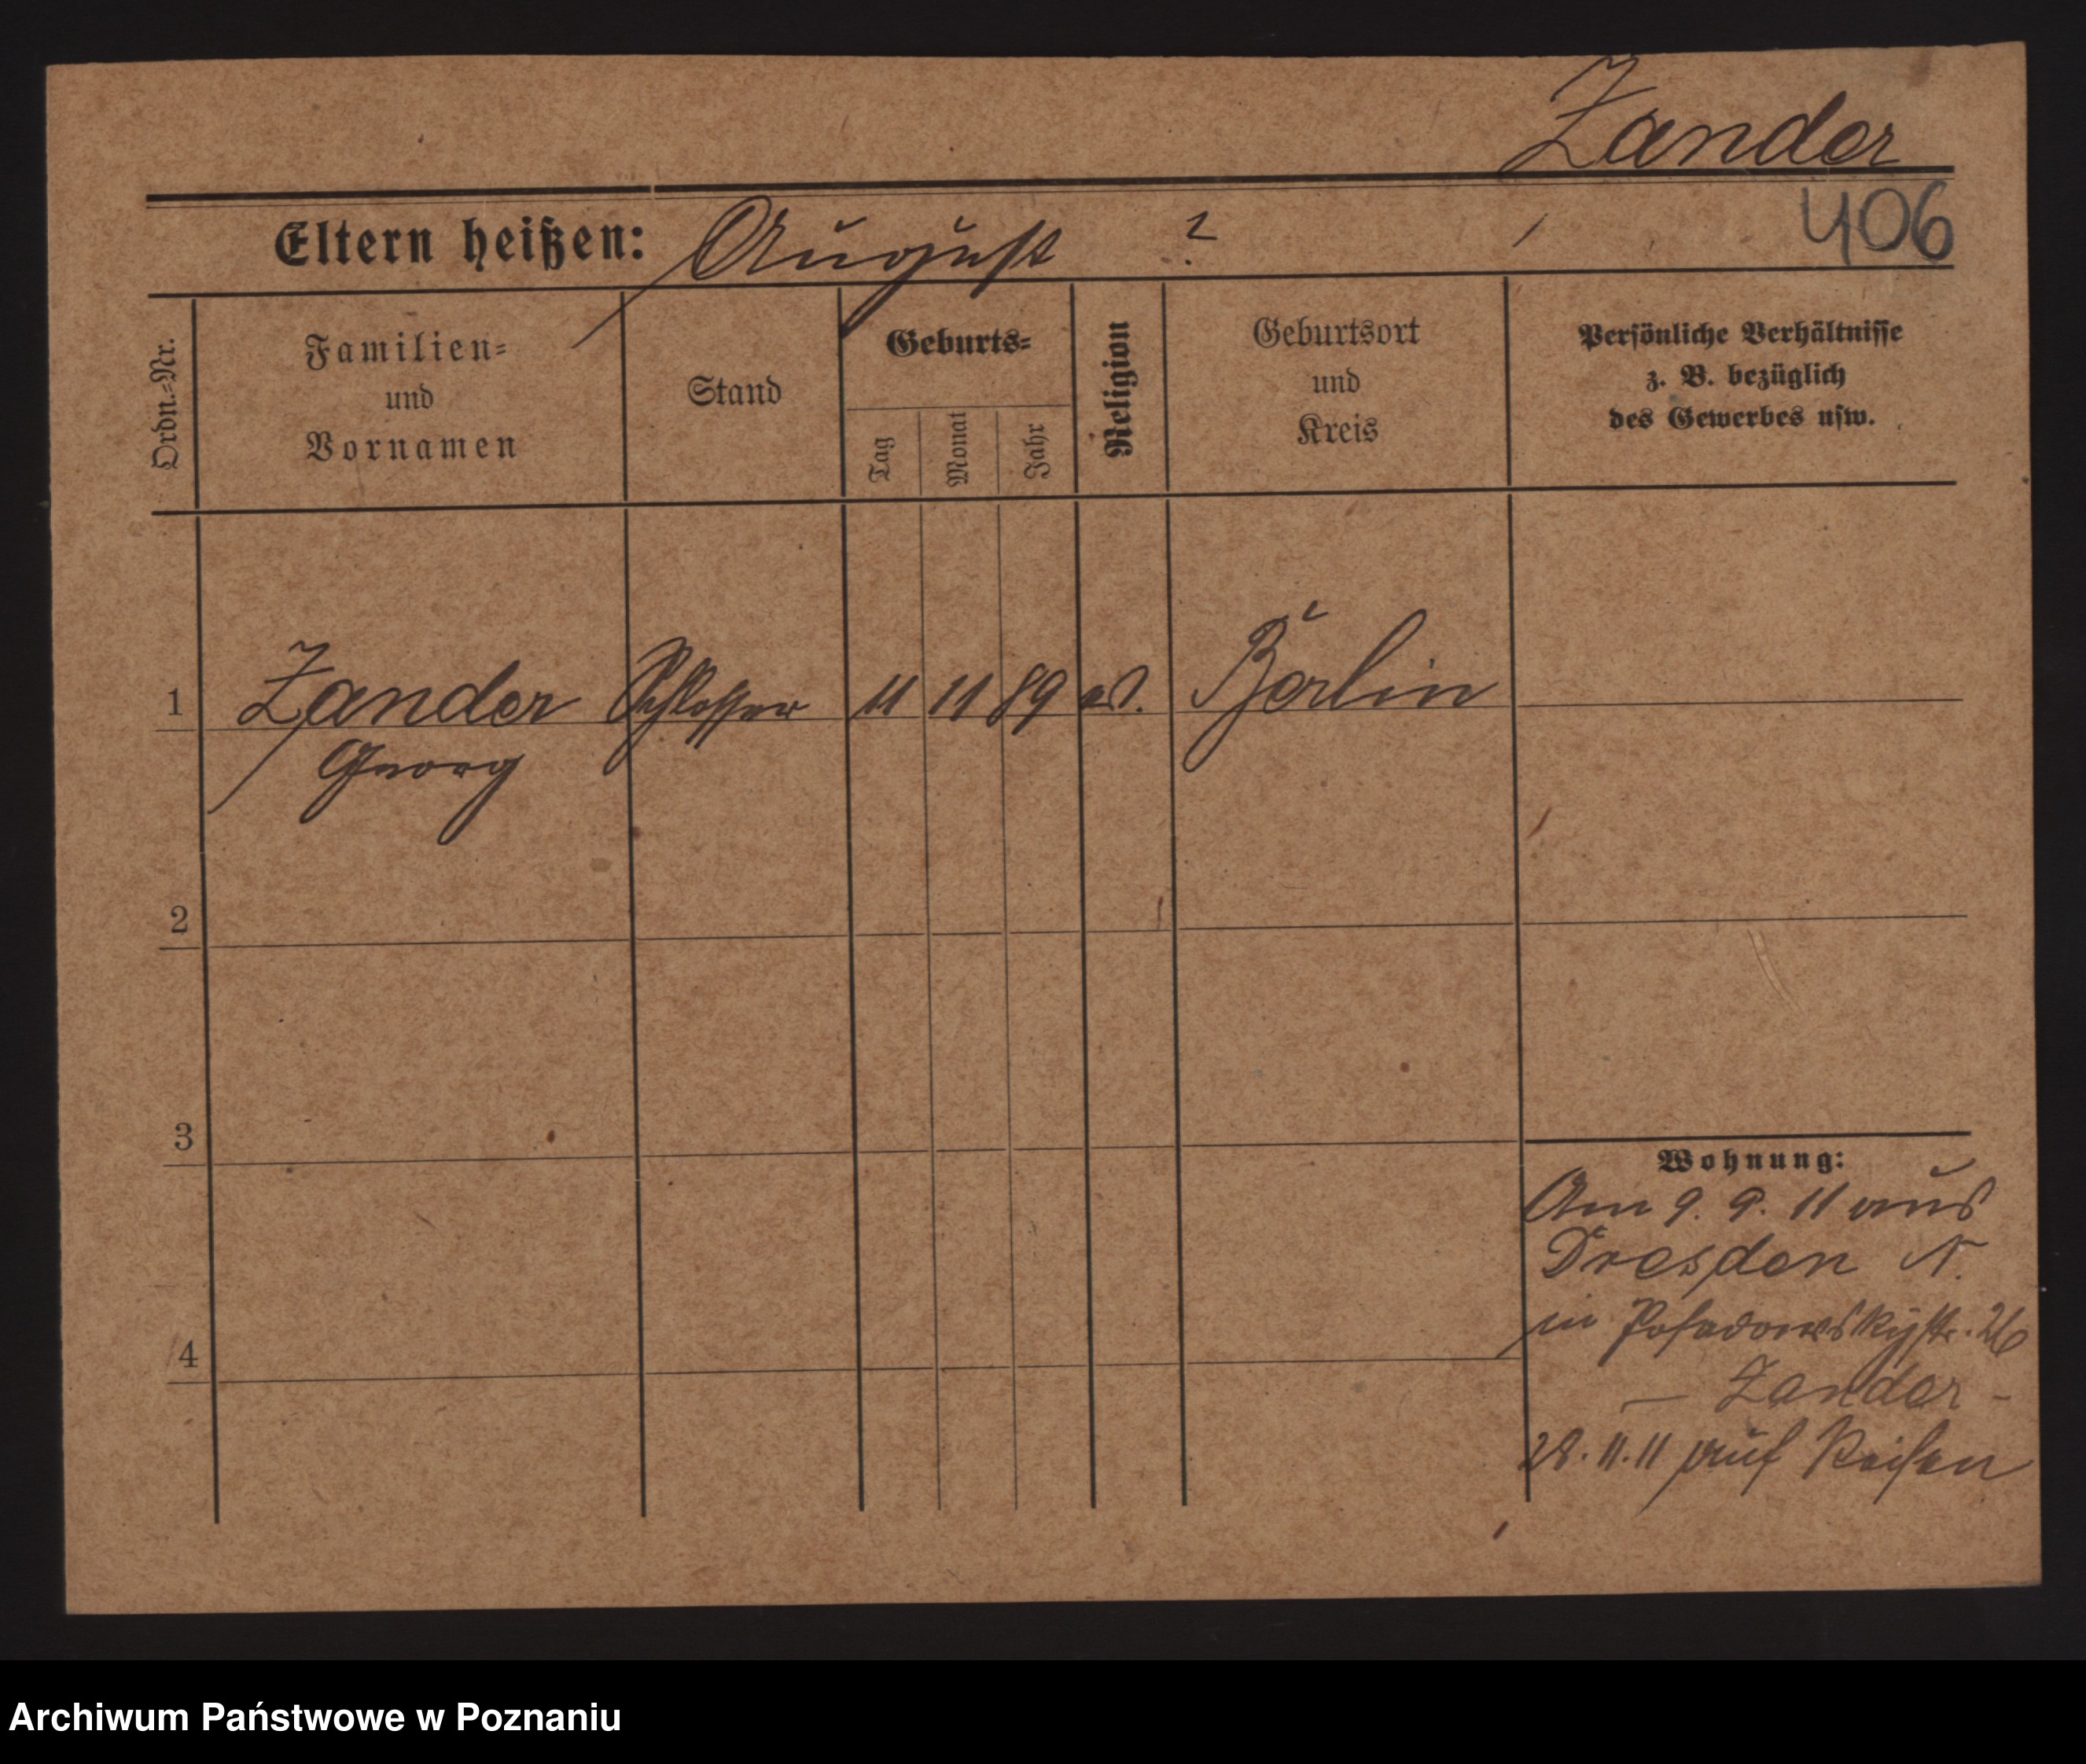 Zander
406
Eltern heißen: August ?
Ordn.-Nr.
Familien-
und
Vornamen
Stand
Geburts-
Tag
Monat
Jahr
Religion
Geburtsort
und
Kreis
Persönliche Verhältnisse
z. B. bezüglich
des Gewerbes usw.
1 Zander Schlosser 11 11 89 ev. Berlin
Georg
2
3
4
Wohnung:
Am 9. 9. 11 aus
Dresden N.
in Posadowskystr. 26
— Zander -
28.11.11 auf Reisen
Archiwum Państwowe w Poznaniu